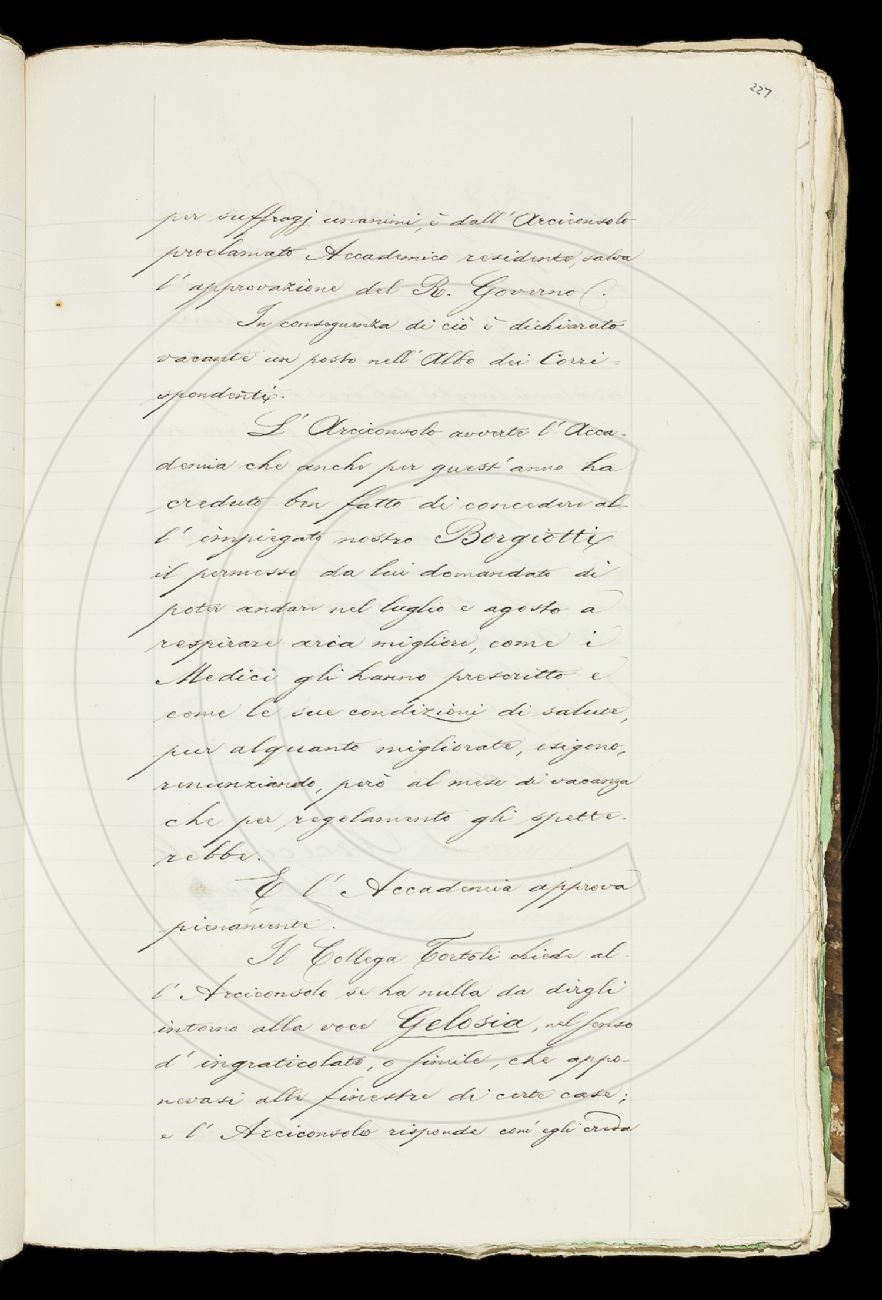 227
per suffragj unanimi, è dall' Arciconsolo
proclamato Accademico residente, salva
l' approvazione del R. Governo.
In conseguenza di ciò è dichiarato
vacante un posto nell' Albo dei Corri=
spondenti.
L' Arciconsolo avverte l' Acca-
demia che anche per quest' anno ha
creduto ben fatto di concedere al-
l' impiegato nostro Borgiotti
il permesso da lui domandato di
poter andare nel luglio e agosto a
respirare aria migliore, come i
Medici gli hanno prescritto e
come le sue condizioni di salute,
pur alquanto migliorate, esigono,
renunziando, però al mese di vacanza
che per regolamento gli spette-
rebbe.
E l' Accademia approva
pienamente.
Il Collega Tortoli chiede al-
l' Arciconsolo se ha nulla da dirgli
intorno alla voce Gelosia, nel senso
d' ingraticolato, o simile, che appo-
nevasi alle finestre di certe case;
e l' Arciconsolo risponde com' egli creda